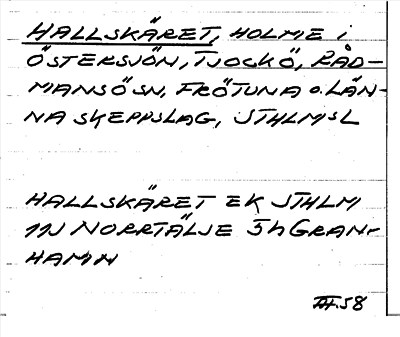 HALLSKÄRET, HOLME i
ÖSTERSJÖN, TJOCKÖ, RÅD-
MANSÖSN, FRÖTUNA o. LÄN-
NA SKEPPSLAG, STHLMSL
HALLSKÄRET EK STHLM
1N NORRTÄLJE 5h GRAN-
HAMN